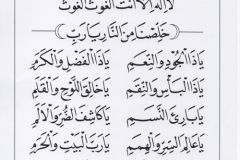 لا إله إلا أنت الغوث الغوث
خَلِّصْنَا مِنَ النَّارِ يَا رَبِّ
يَا ذَا الْجُودِ وَالنِّعَمِ يَا ذَا الْفَضْلِ وَالْكَرَمِ
يَا ذَا الْبَأْسِ وَالنِّقَمِ يَا خَالِقَ اللَّوْحِ وَالْقَلَمِ
يَا بَارِئَ النَّسَمِ يَا كَاشِفَ الضُّرِّ وَالْأَلَمِ
يَا عَالِمَ السِّرِّ وَالْهِمَمِ يَا رَبَّ الْبَيْتِ وَالْحَرَمِ